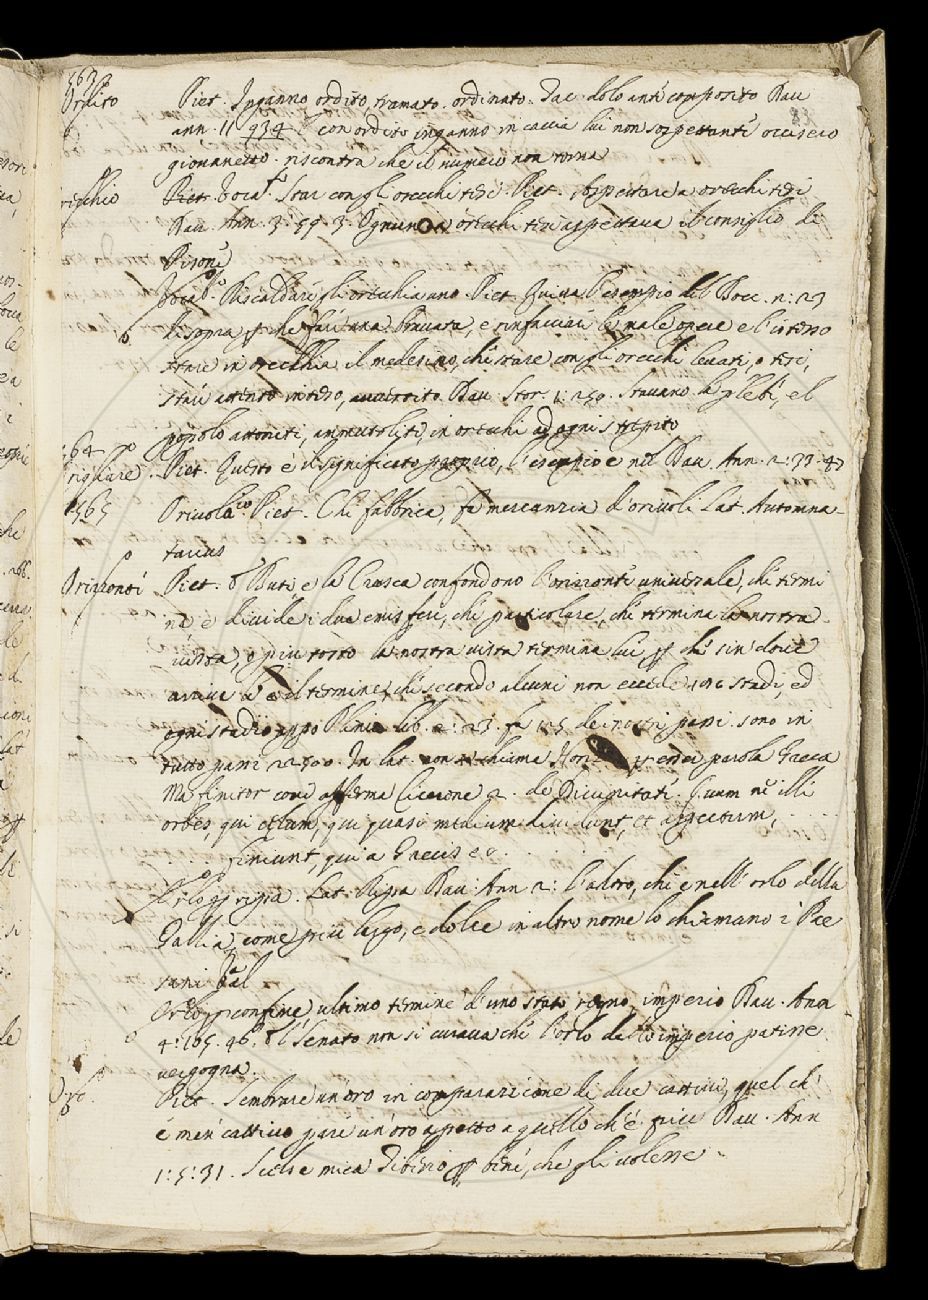 1563
Ordito Piet. Inganno ordito, tramato. ordinato. Tac. dolo ante composito Dav
ann. 11 934 con ordito inganno in caccia lui non sospettante occiseio
giovanetto. riscontra che il numero non torna
recchio Piet. Voca. Star con gli orecchi tesi Piet. Aspettare a orecchi tesi
Dav. Ann. 3: 59. 3. Ognun a orecchi tesi aspettava il consiglio di
Pisone
Voca Riscaldare gli orecchi a uno Piet. Quiva l'esempio del Bocc. n: 23
di sopra p che farli una bravata, e rinfacciare le male opere e l'istesso
stare in orecchia il medesimo, che stare con gli orecchi levati, o tesi,
stare attento inteso, avvertito Dav. Stor. 1: 250. Stavano la plebe, el
popolo attoniti, ammutoliti, in orecchi ad ogni strepito
564
Piet. Questo è il significato proprio, l'esempio è nel Dav. Ann. 2: 33. 47
1565 Orivolaio. Piet. Chi fabbrica, fa mercanzia d'orivoli Lat. Automna-
tarius
Orizzonte Piet. Il Buti e la Crusca confondono l'orizzonte universale, che termi
na e divide i due emisferi, che particolare, che termina la nostra
vista, o più tosto la nostra vista termina lui, p che sin dove
arriva è il termine, che secondo alcuni non eccede 196 stadi, ed
ogni stadio appo Plinio lib. 2: 23. fa 125 de nostri passi sono in
tutto passi 22500. In lat. non si chiama Horiz perche parola Graeca
Ma finitor come afferma Cicerone 2. de Divinitate. Quum illi
orbes, qui celum, qui quasi medium dividunt, et aspectum,
finiunt, qui a Grecis ec.
Orlo p ripa. Lat. Ripa Dav: Ann 2: l'altro, che è nell'orlo della
Gallia, come più largo, e dolce in altro nome lo chiamano i Pae
sani Val
Orlo p confine, ultimo termine d'uno stato regno, imperio Dav. Ann
4: 105. 46. Il Senato non si curava che l'orlo dello imperio patisse
vergogna.
Oro. Piet. Sembrare un'oro in comparazione di due cattivi, quel ch'
è men' cattivo pare un'oro aspetto a quello ch'è più Dav. Ann
1: 5: 31. Scelse mica Tiberio p bene, che gli volesse